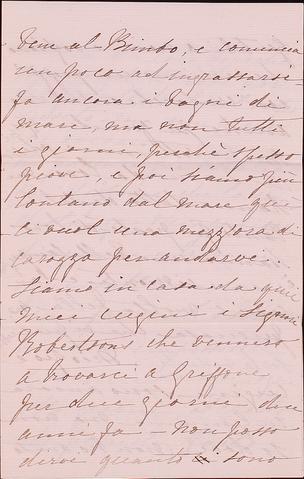 bene al Bimbo, e comincia
un poco ad ingrassarsi-
fa ancora i bagni di
mare, ma non tutti
i giorni, perchè spesso
piove, e poi siamo più
lontano dal mare qui
ci vuol una mezz'ora di
carozza per andarve.
Siamo in casa da quei
miei cugini i Signri
Robertsons che vennero
a trovarci a Griffone
per due giorni due
anni fa - non posso
dirvi quanto sono